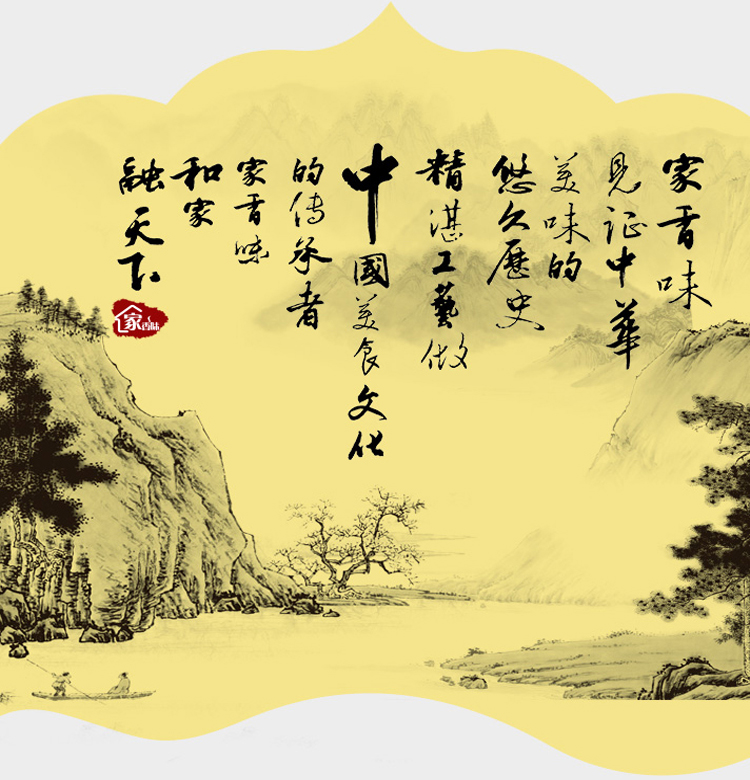 家香味
见证中華
美味的
悠久歷史
精湛工藝做
中國美食文化
的传承者
家香味
和家
融天下
家香味